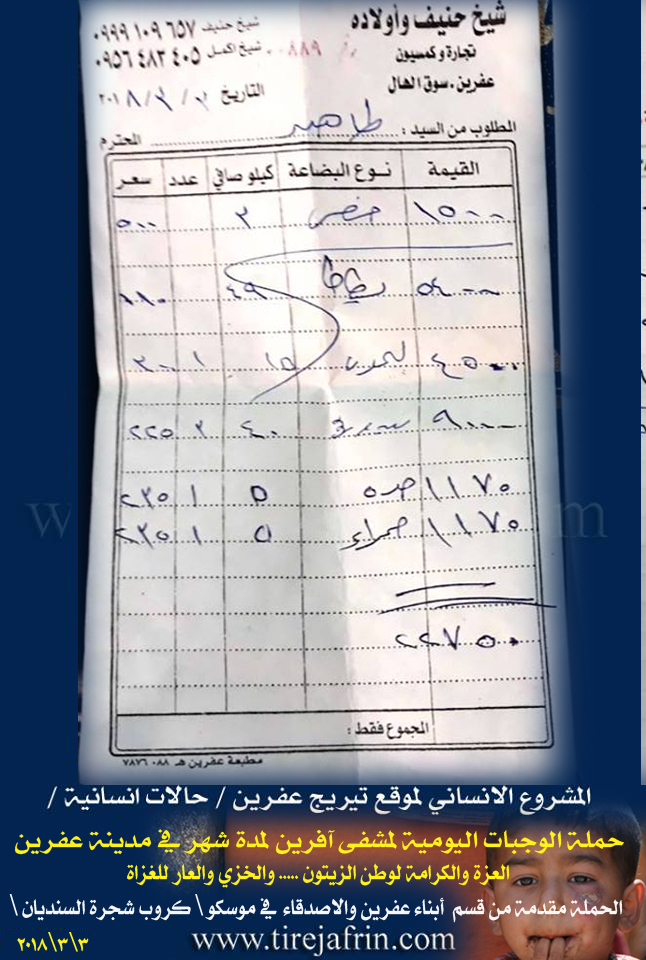 شيخ حنيف وأولاده
تجارة وكمسيون
عفرين . سوق الهال
شيخ حنيف ٠٩٩٩ ١٠٩ ٦٥٧
شيخ اكمل ٠٩٥٦ ٤٨٣ ٤٠٥
٠٠٨٨٩
التاريخ ٣ / ٣ / ٢٠١٨
المطلوب من السيد : طاهر المحترم
القيمة نوع البضاعة كيلو صافي عدد سعر
١٥٠٠ خضر ٣ ٥٠٠
٥٤٠٠ بطاطا ٤٩ ١١٠
٤٥٠٠ ليمون ١٥ ١ ٣٠٠
٩٠٠٠ ٤٠ ٢ ٢٢٥
١١٧٠ ٥ ١ ٢٣٥
١١٧٠ حمراء ٥ ١ ٢٣٥
٢٢٧٥٠
المجموع فقط :
مطبعة عفرين هـ ٠٨٨ ٧٨٧٦
المشروع الانساني لموقع تيريج عفرين / حالات انسانية /
حملة الوجبات اليومية لمشفى آفرين لمدة شهر في مدينة عفرين
العزة والكرامة لوطن الزيتون ..... والخزي والعار للغزاة
الحملة مقدمة من قسم أبناء عفرين والاصدقاء في موسكو \ كروب شجرة السنديان \
٣\٣\٢٠١٨
www.tirejafrin.com